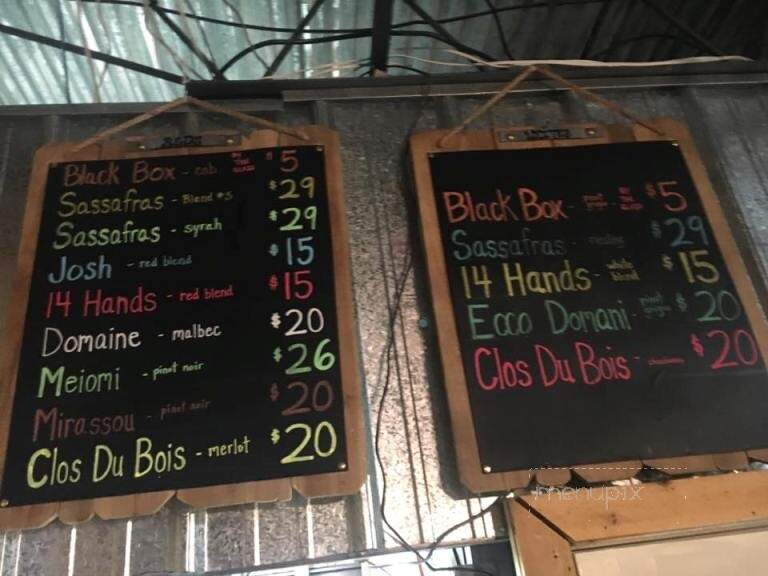 Black Box - cab BY THE GLASS $5
Sassafras - Blend #3 $29
Sassafras - syrah $29
Josh - red blend $15
14 Hands - red blend $15
Domaine - malbec $20
Meiomi - pinot noir $26
Mirassou - pinot noir $20
Clos Du Bois - merlot $20
Black Box - pinot BY THE GLASS $5
Sassafras - $29
14 Hands - white blend $15
Ecco Domani - pinot grigio $20
Clos Du Bois - $20
menupix